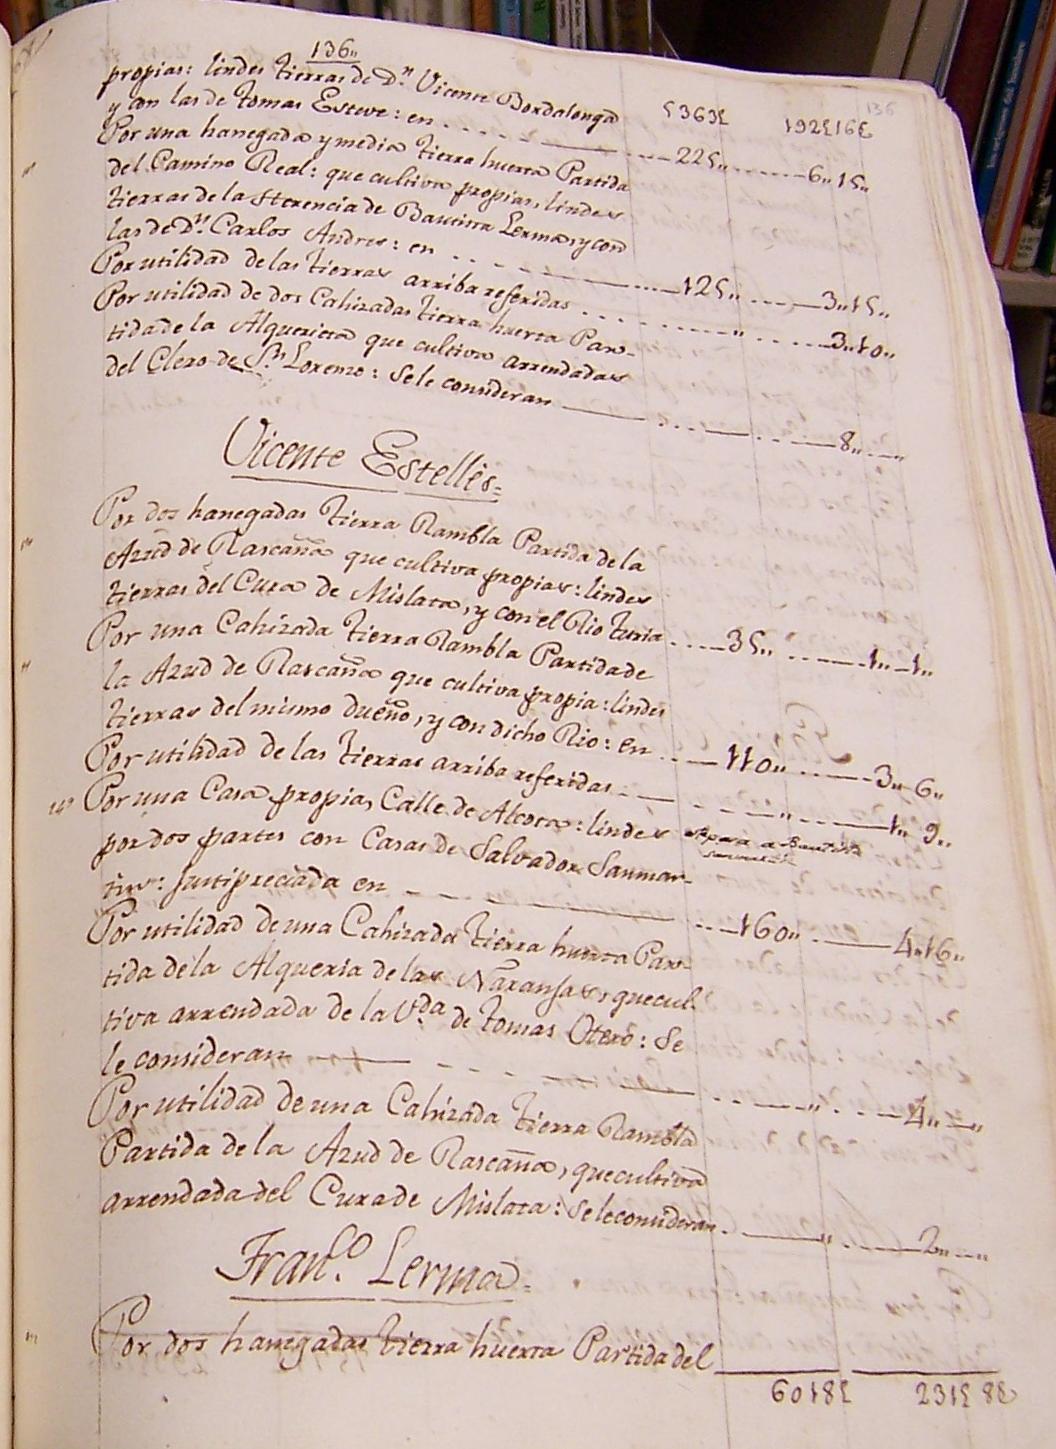 136„
136
propias: lindes tierras de Dn Vicente Bordalonga 5363£ 192£16£
y con las de Tomas Esteve: en 225„ 6„15„
Por una hanegada y media tierra huerta Partida
del Camino Real: que cultiva propias, lindes
tierras de la Herencia de Bautista Lerma, y con
las de Dn Carlos Andres: en 125„ 3„15„
Por utilidad de las tierras arriba referidas „ 3„10„
Por utilidad de dos Cahizadas tierra huerta Par-
tida de la Alquerieta que cultiva arrendadas
del Clero de Sn Lorenzo: se le consideran 8„
Vicente Estellès=
Por dos hanegadas tierra Rambla Partida de la
Azud de Rascaña que cultiva propias: lindes
tierras del Cura de Mislata, y con el Rio Turia 35„ 1„1„
Por una Cahizada tierra Rambla Partida de
la Azud de Rascaña que cultiva propia: lindes
tierras del mismo dueño, y con dicho Rio: en 110„ 3„6„
Por utilidad de las tierras arriba referidas „ 1„9„
Por una Casa propia, Calle de Alcora: lindes
pasa a Bautista
por dos partes con Casas de Salvador Sanmar-
tin: justipreciada en 160„ 4„16„
Por utilidad de una Cahizada tierra huerta Par-
tida de la Alqueria de las Naranjas, que cul-
tiva arrendada de la Vda de Tomas Otero: Se
le consideran „ 4„
Por utilidad de una Cahizada tierra Rambla
Partida de la Azud de Rascaña, que cultiva
arrendada del Cura de Mislata: se le consideran „ 2„
Franco Lerma=
Por dos hanegadas tierra huerta Partida del
6018£ 231£8£